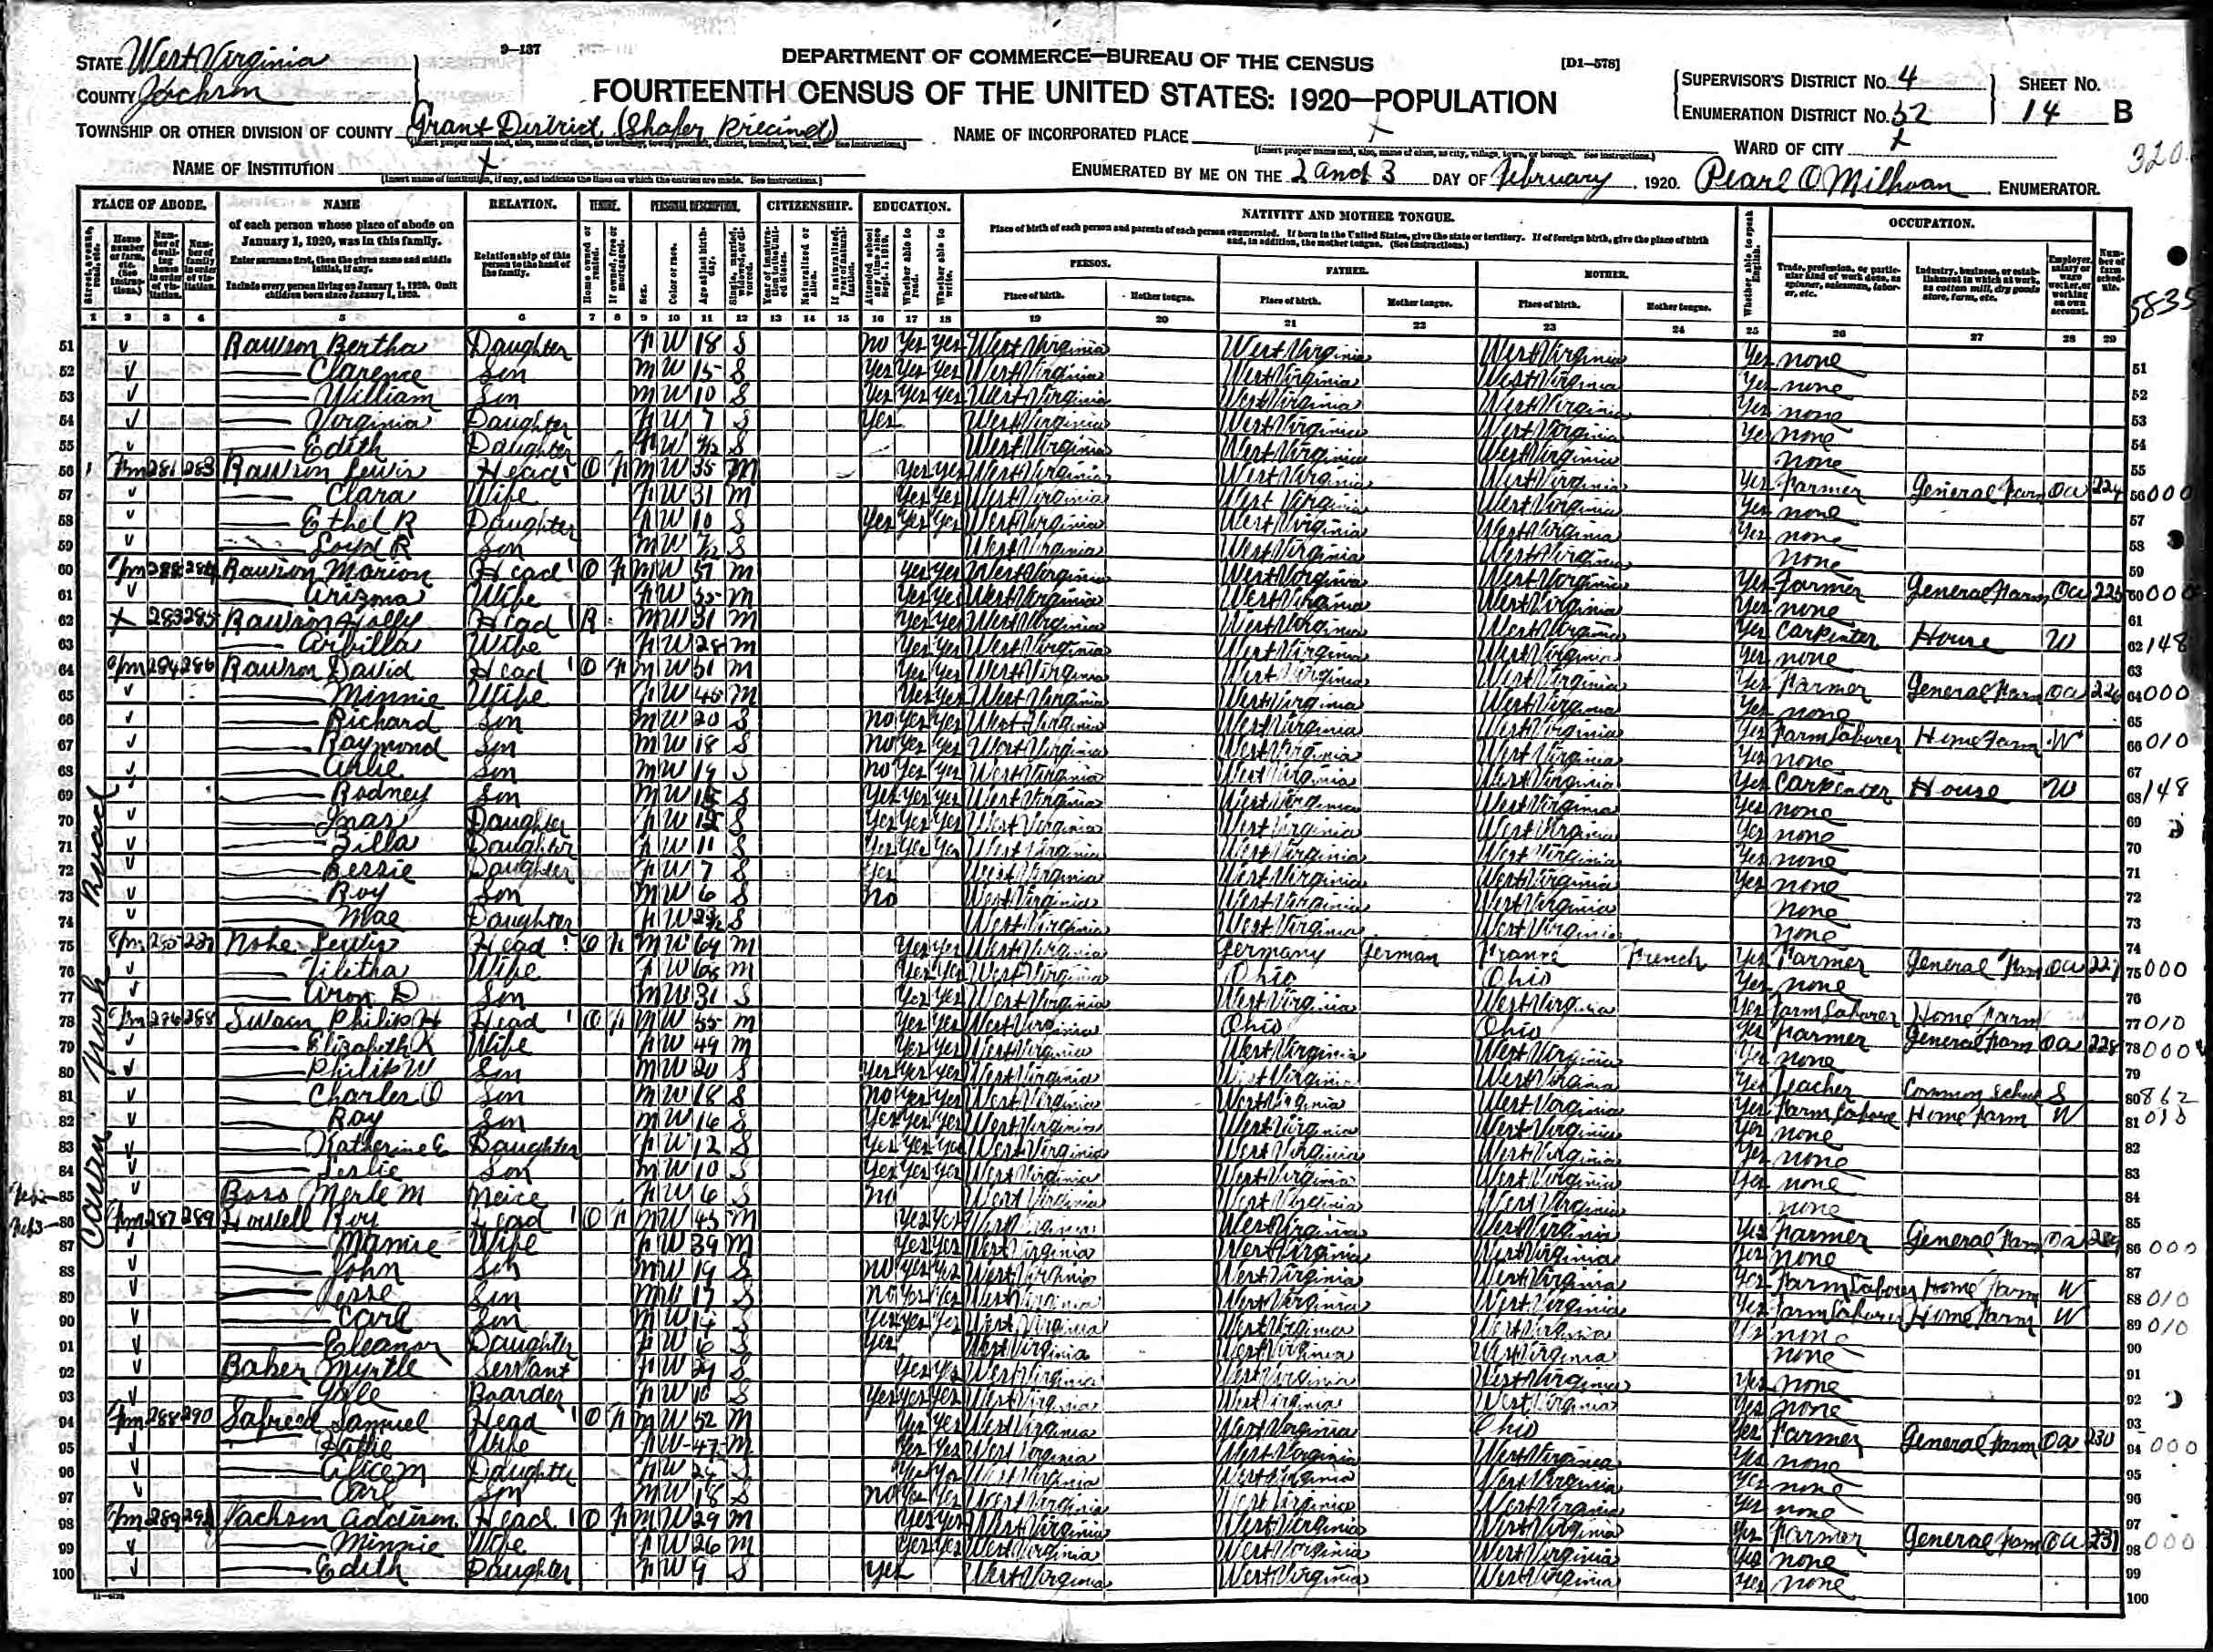 9—137
DEPARTMENT OF COMMERCE—BUREAU OF THE CENSUS
[D1—578]
FOURTEENTH CENSUS OF THE UNITED STATES: 1920—POPULATION
STATE West Virginia
COUNTY Jackson
TOWNSHIP OR OTHER DIVISION OF COUNTY Grant District (Shafer Precinct)
NAME OF INSTITUTION X
NAME OF INCORPORATED PLACE X
ENUMERATED BY ME ON THE 2 and 3 DAY OF February, 1920. Pearl O Milhoan ENUMERATOR.
SUPERVISOR'S DISTRICT No. 4
ENUMERATION DISTRICT No. 52
SHEET No. 14 B
WARD OF CITY X
320
5835
PLACE OF ABODE. NAME RELATION. TENURE. PERSONAL DESCRIPTION. CITIZENSHIP. EDUCATION. NATIVITY AND MOTHER TONGUE. OCCUPATION.
of each person whose place of abode on January 1, 1920, was in this family.
Enter surname first, then the given name and middle initial, if any.
Include every person living on January 1, 1920. Omit children born since January 1, 1920.
Relationship of this person to the head of the family.
Place of birth of each person and parents of each person enumerated. If born in the United States, give the state or territory. If of foreign birth, give the place of birth and, in addition, the mother tongue. (See instructions.)
PERSON. FATHER. MOTHER.
Place of birth. Mother tongue. Place of birth. Mother tongue. Place of birth. Mother tongue.
1 2 3 4 5 6 7 8 9 10 11 12 13 14 15 16 17 18 19 20 21 22 23 24 25 26 27 28 29
Cow Run Road
51 Rawson Bertha Daughter F W 18 S no Yes Yes West Virginia West Virginia West Virginia Yes none
52 Clarence Son M W 15 S Yes Yes Yes West Virginia West Virginia West Virginia Yes none
53 William Son M W 10 S Yes Yes Yes West Virginia West Virginia West Virginia Yes none
54 Virginia Daughter F W 7 S Yes West Virginia West Virginia West Virginia Yes none
55 Edith Daughter F W S West Virginia West Virginia West Virginia none
56 Fm 281 283 Rawson Lewis Head O F M W 35 M Yes Yes West Virginia West Virginia West Virginia Yes Farmer General Farm OA 224 000
57 Clara Wife F W 31 M Yes Yes West Virginia West Virginia West Virginia Yes none
58 Ethel R Daughter F W 10 S Yes Yes Yes West Virginia West Virginia West Virginia Yes none
59 Loyd R Son M W S West Virginia West Virginia West Virginia none
60 Fm 282 284 Rawson Marion Head O F M W 57 M Yes Yes West Virginia West Virginia West Virginia Yes Farmer General Farm OA 225 000
61 Arizona Wife F W 55 M Yes Yes West Virginia West Virginia West Virginia Yes none
62 X 283 285 Rawson Holly Head R M W 31 M Yes Yes West Virginia West Virginia West Virginia Yes Carpenter House W 148
63 Arbilla Wife F W 28 M Yes Yes West Virginia West Virginia West Virginia Yes none
64 Fm 284 286 Rawson David Head O F M W 51 M Yes Yes West Virginia West Virginia West Virginia Yes Farmer General Farm OA 226 000
65 Minnie Wife F W 45 M Yes Yes West Virginia West Virginia West Virginia Yes none
66 Richard Son M W 20 S no Yes Yes West Virginia West Virginia West Virginia Yes Farm Laborer Home Farm W 010
67 Raymond Son M W 18 S no Yes Yes West Virginia West Virginia West Virginia Yes none
68 Arlie Son M W 19 S no Yes Yes West Virginia West Virginia West Virginia Yes Carpenter House W 148
69 Rodney Son M W 15 S Yes Yes Yes West Virginia West Virginia West Virginia Yes none
70 Inas Daughter F W 12 S Yes Yes Yes West Virginia West Virginia West Virginia Yes none
71 Zilla Daughter F W 11 S Yes Yes Yes West Virginia West Virginia West Virginia Yes none
72 Bessie Daughter F W 7 S Yes West Virginia West Virginia West Virginia Yes none
73 Roy Son M W 6 S no West Virginia West Virginia West Virginia none
74 Mae Daughter F W S West Virginia West Virginia West Virginia none
75 Fm 285 287 Nohe Lewis Head O F M W 64 M Yes Yes West Virginia Germany German France French Yes Farmer General Farm OA 227 000
76 Tilitha Wife F W 68 M Yes Yes West Virginia Ohio Ohio Yes none
77 Aron D Son M W 31 S Yes Yes West Virginia West Virginia West Virginia Yes Farm Laborer Home Farm 010
78 Fm 286 288 Swain Philip H Head O F M W 55 M Yes Yes West Virginia Ohio Ohio Yes Farmer General Farm OA 228 000
79 Elizabeth K Wife F W 49 M Yes Yes West Virginia West Virginia West Virginia Yes none
80 Philip W Son M W 20 S Yes Yes Yes West Virginia West Virginia West Virginia Yes Teacher Common School S 862
81 Charles O Son M W 18 S no Yes Yes West Virginia West Virginia West Virginia Yes Farm Labore Home Farm W 010
82 Ray Son M W 16 S Yes Yes Yes West Virginia West Virginia West Virginia Yes none
83 Katherine E Daughter F W 12 S Yes Yes Yes West Virginia West Virginia West Virginia Yes none
84 Leslie Son M W 10 S Yes Yes Yes West Virginia West Virginia West Virginia Yes none
Feb 2— 85 Boso Merle M Neice F W 6 S no West Virginia West Virginia West Virginia none
Feb 3— 86 Fm 287 289 Roy Head O F M W 45 M Yes Yes West Virginia West Virginia West Virginia Yes Farmer General Farm OA 229 000
87 Mamie Wife F W 39 M Yes Yes West Virginia West Virginia West Virginia Yes none
88 John Son M W 19 S no Yes Yes West Virginia West Virginia West Virginia Yes Farm Laborer Home Farm W 010
89 Jesse Son M W 17 S no Yes Yes West Virginia West Virginia West Virginia Yes Farm Laborer Home Farm W 010
90 Carl Son M W 14 S Yes Yes Yes West Virginia West Virginia West Virginia Yes none
91 Eleanor Daughter F W 6 S Yes West Virginia West Virginia West Virginia none
92 Baker Myrtle Servant F W 29 S Yes Yes West Virginia West Virginia West Virginia Yes none
93 Gole Boarder F W 10 S Yes Yes Yes West Virginia West Virginia West Virginia Yes none
94 Fm 288 290 Samuel Head O F M W 52 M Yes Yes West Virginia West Virginia Ohio Yes Farmer General Farm OA 230 000
95 Hattie Wife F W 47 M Yes Yes West Virginia West Virginia West Virginia Yes none
96 Alice M Daughter F W S Yes Yes West Virginia West Virginia West Virginia Yes none
97 Carl Son M W 18 S no Yes Yes West Virginia West Virginia West Virginia Yes none
98 Fm 289 291 Jackson Addison Head O F M W 29 M Yes Yes West Virginia West Virginia West Virginia Yes Farmer General Farm OA 231 000
99 Minnie Wife F W 26 M Yes Yes West Virginia West Virginia West Virginia Yes none
100 Edith Daughter F W 9 S Yes West Virginia West Virginia West Virginia Yes none